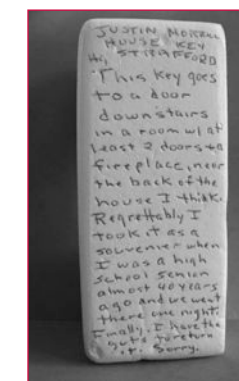 JUSTIN MORRILL
HOUSE KEY
Hi, STRAFFORD
This key goes
to a door
downstairs
in a room w/ at
least 2 doors & a
fireplace, near
the back of the
house I think.
Regrettably I
took it as a
souvenier when
I was a high
school senior
almost 40 years
ago and we went
there one night.
Finally, I have the
guts to return
it. Sorry.